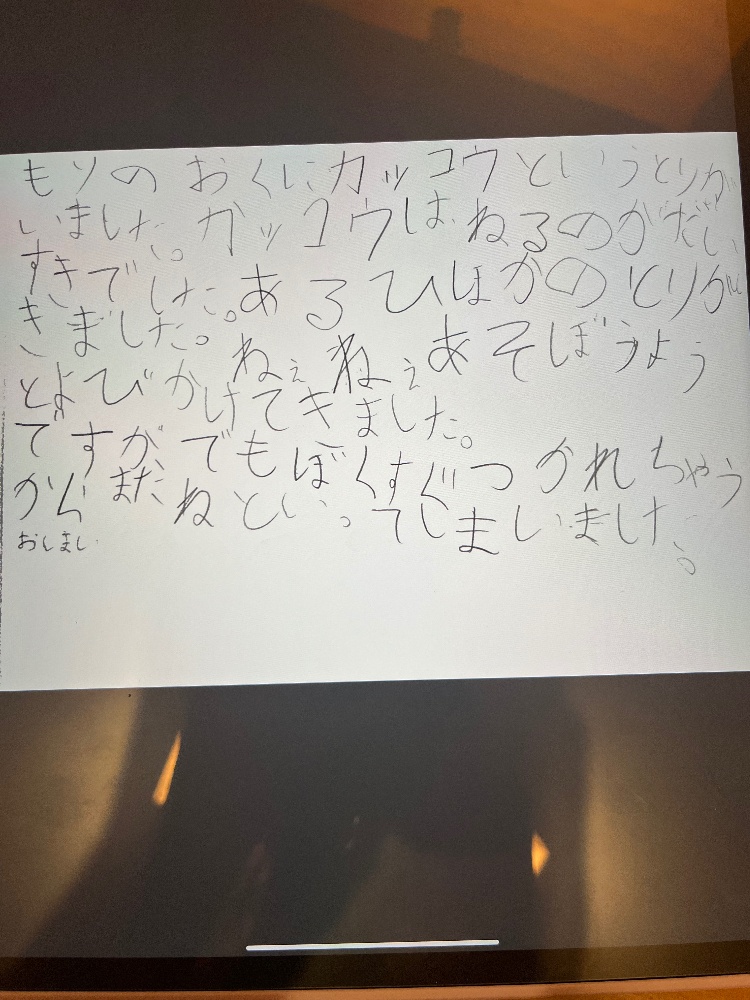 もりの おくにカッコウというとりが
いました。カッコウは、ねるのがだい
すきでした。あるひほかのとりが
きました。ねぇねぇあそぼうよう
とよびかけてきました。
ですが、でもぼくすぐつかれちゃう
から まだねといってしまいました。
おしまい